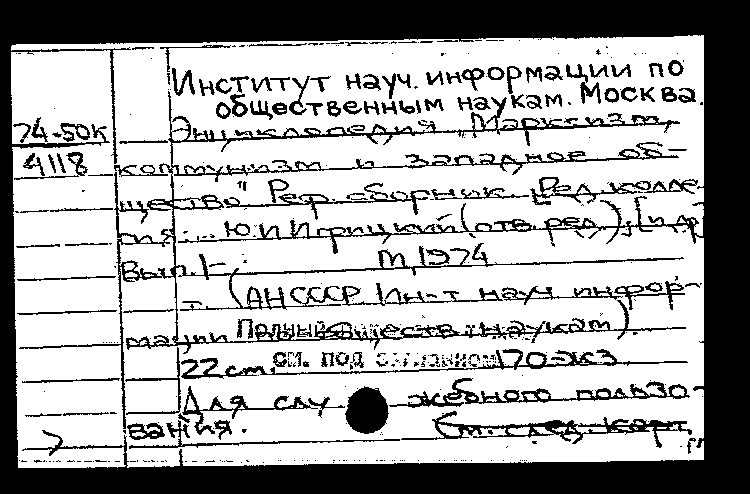 Институт науч. информации по
общественным наукам. Москва.
74-50к
4118
Энциклопедия „Марксизм,
коммунизм и западное об-
щество" Реф. сборник. [Ред. колле-
гия: ... Ю.И Игрицкий (отв. ред.), [и др]
Вып. 1-, М, 1974
т. (АН СССР Ин-т науч инфор-
мации по обществ. наукам).
Полный
см. под
22 cm. 170 экз
Для служебного пользо-
вания. См. след. карт.